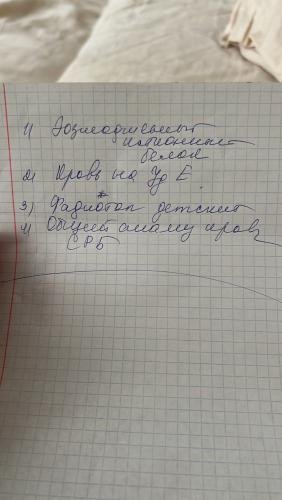 1) Эозинофильный
катионный
белок
2) Кровь на Yg E.
3) Фадиотоп детский
4) Общий анализ кров
СРБ